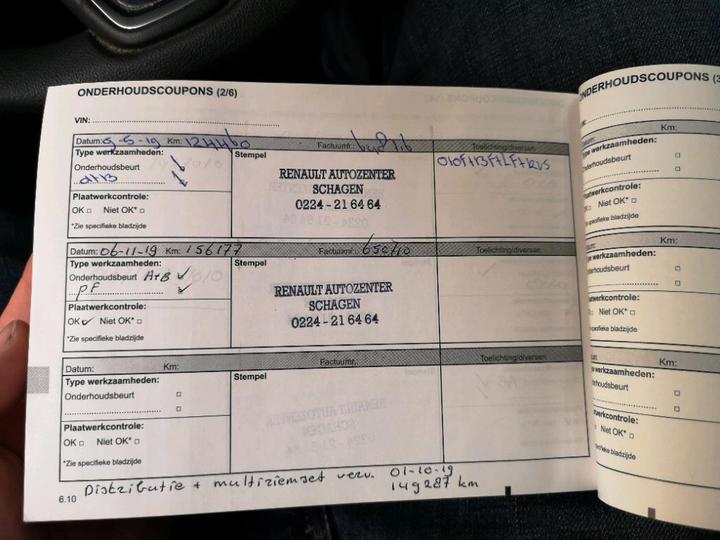 ONDERHOUDSCOUPONS (2/6)
VIN:
Datum: 9-5-19 Km: 124460 Factuurnr.: Toelichting/diversen
Type werkzaamheden:
Onderhoudsbeurt
A+B
Plaatwerkcontrole:
OK Niet OK*
*Zie specifieke bladzijde
Stempel
RENAULT AUTOZENTER
SCHAGEN
0224 - 21 64 64
Datum: 06-11-19 Km: 156177 Factuurnr. Toelichting/diversen
Type werkzaamheden:
Onderhoudsbeurt A+B
PF
Plaatwerkcontrole:
OK Niet OK*
*Zie specifieke bladzijde
Stempel
RENAULT AUTOZENTER
SCHAGEN
0224 - 21 64 64
Datum: Km: Factuurnr.: Toelichting/diversen
Type werkzaamheden:
Onderhoudsbeurt
Plaatwerkcontrole:
OK Niet OK*
*Zie specifieke bladzijde
Stempel
6.10
Distributie + multiriemset verv. 01-10-19
149287 km
ONDERHOUDSCOUPONS (3
VIN:
Km:
Type werkzaamheden:
Onderhoudsbeurt
Plaatwerkcontrole:
Niet OK*
*Zie specifieke bladzijde
Km:
Type werkzaamheden:
Onderhoudsbeurt
Plaatwerkcontrole:
Niet OK*
*Zie specifieke bladzijde
Km:
Type werkzaamheden:
Onderhoudsbeurt
Plaatwerkcontrole:
Niet OK*
*Zie specifieke bladzijde